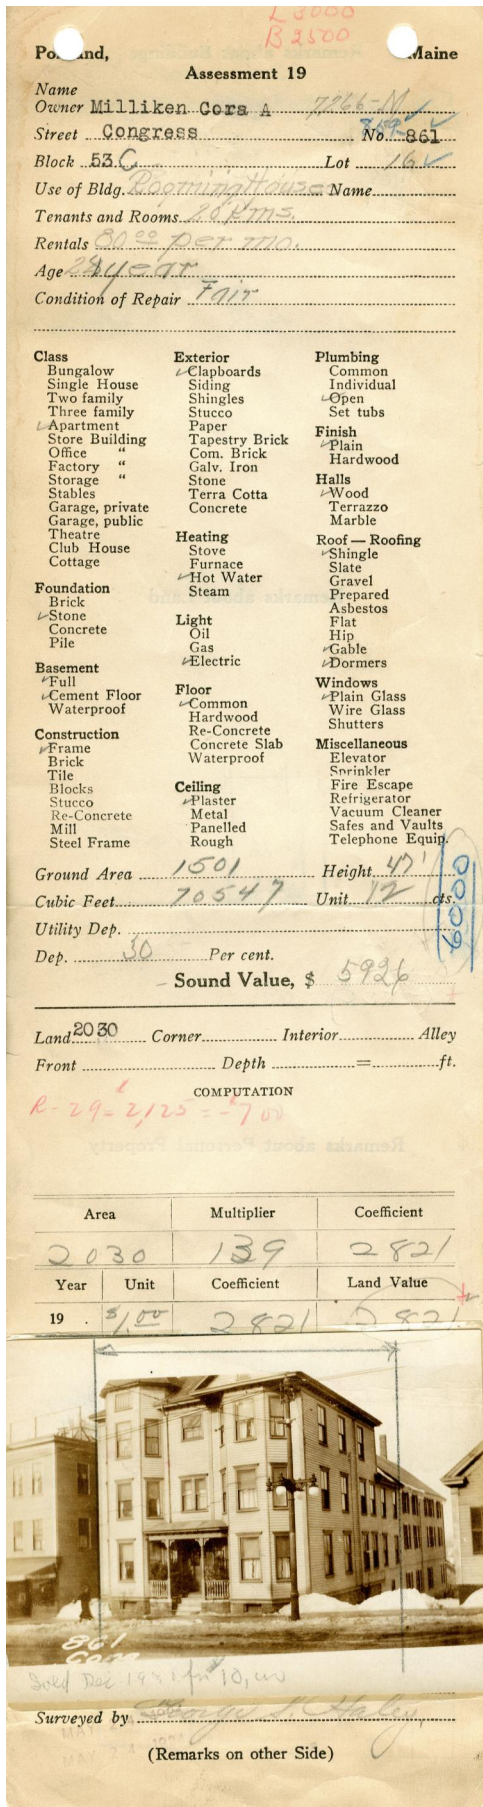 L 3000
B 2500
Portland, Maine
Assessment 19
Name
Owner Milliken Cora A 7266-M
Street Congress 859 No. 861
Block 53 C Lot 16
Use of Bldg. Rooming House Name
Tenants and Rooms 20 Rms.
Rentals 80 00 per mo.
Age 28 year
Condition of Repair Fair
Class
Bungalow
Single House
Two family
Three family
Apartment
Store Building
Office "
Factory "
Storage "
Stables
Garage, private
Garage, public
Theatre
Club House
Cottage
Foundation
Brick
Stone
Concrete
Pile
Basement
Full
Cement Floor
Waterproof
Construction
Frame
Brick
Tile
Blocks
Stucco
Re-Concrete
Mill
Steel Frame
Exterior
Clapboards
Siding
Shingles
Stucco
Paper
Tapestry Brick
Com. Brick
Galv. Iron
Stone
Terra Cotta
Concrete
Heating
Stove
Furnace
Hot Water
Steam
Light
Oil
Gas
Electric
Floor
Common
Hardwood
Re-Concrete
Concrete Slab
Waterproof
Ceiling
Plaster
Metal
Panelled
Rough
Plumbing
Common
Individual
Open
Set tubs
Finish
Plain
Hardwood
Halls
Wood
Terrazzo
Marble
Roof — Roofing
Shingle
Slate
Gravel
Prepared
Asbestos
Flat
Hip
Gable
Dormers
Windows
Plain Glass
Wire Glass
Shutters
Miscellaneous
Elevator
Sprinkler
Fire Escape
Refrigerator
Vacuum Cleaner
Safes and Vaults
Telephone Equip.
Ground Area 1501 Height 47'
Cubic Feet 70547 Unit 12 cts.
6000
Utility Dep.
Dep. 30 Per cent.
Sound Value, $ 5926
Land 2030 Corner Interior Alley
Front Depth = ft.
COMPUTATION
R-29 = 2,125 = -700
Area Multiplier Coefficient
2030 139 2821
Year Unit Coefficient Land Value
19 . $1.00 2821 2821
861
Cong
Sold Dec 19
Surveyed by George S. Haley
(Remarks on other Side)